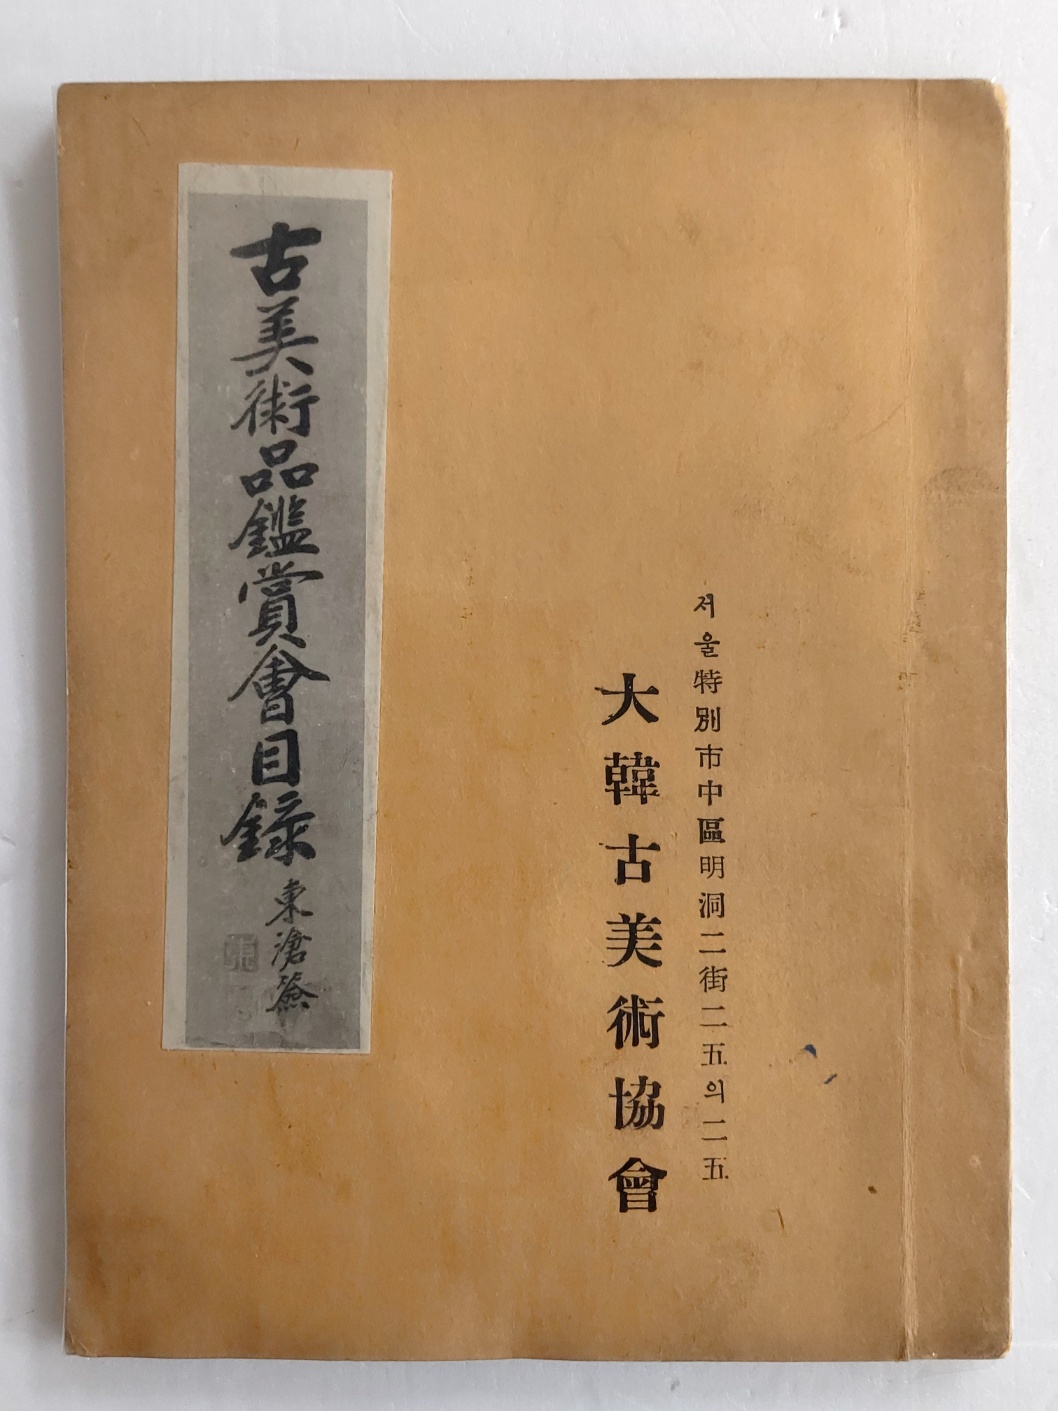 서울特別市中區明洞二街二五의二五
大韓古美術協會
古美術品鑑賞會目録
東滄簽
張